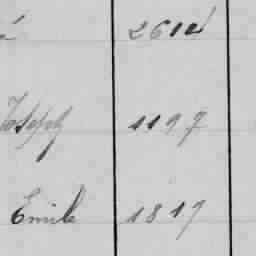 2614
Joseph 1197
Emile 1817